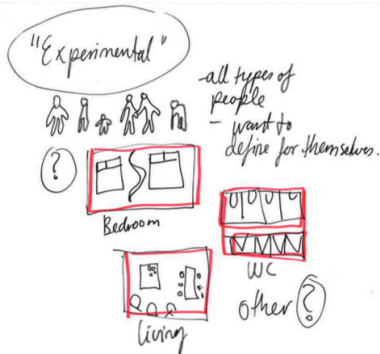 "Experimental"
- all types of
people
- want to
define for themselves.
?
Bedroom
WC
other ?
living